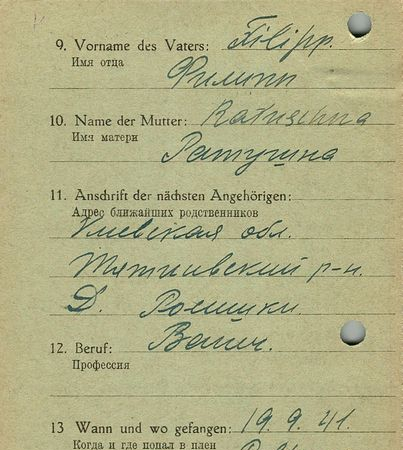 9. Vorname des Vaters: Filipp.
Имя отца
Филипп
10. Name der Mutter: Ratuschna
Имя матери
Ратушна
11. Anschrift der nächsten Angehörigen:
Адрес ближайших родственников
Киевская обл.
р-н.
Д.
12. Beruf:
Профессия
13 Wann und wo gefangen: 19.9.41.
Когда и где попал в плен